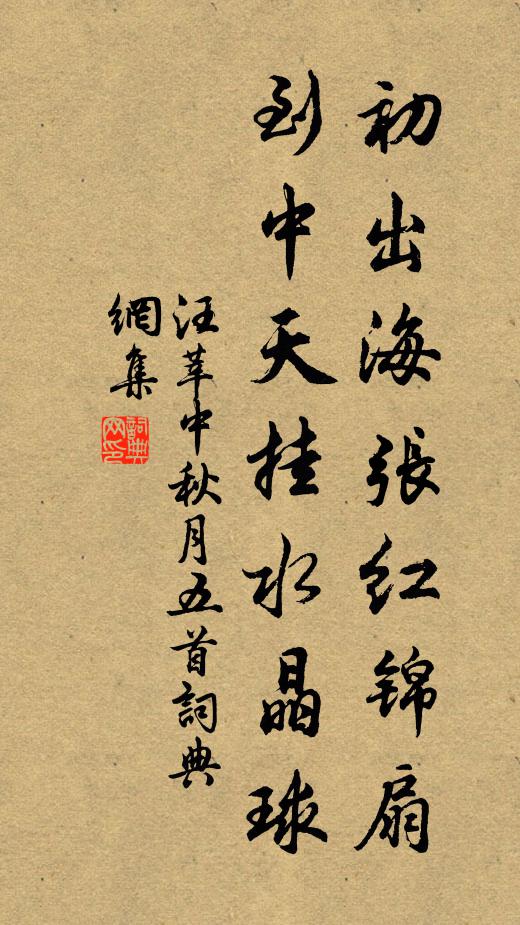 初出海張红锦扇
到中天挂水晶球
汪莘中秋月五首詞典
網集
詞典
网印